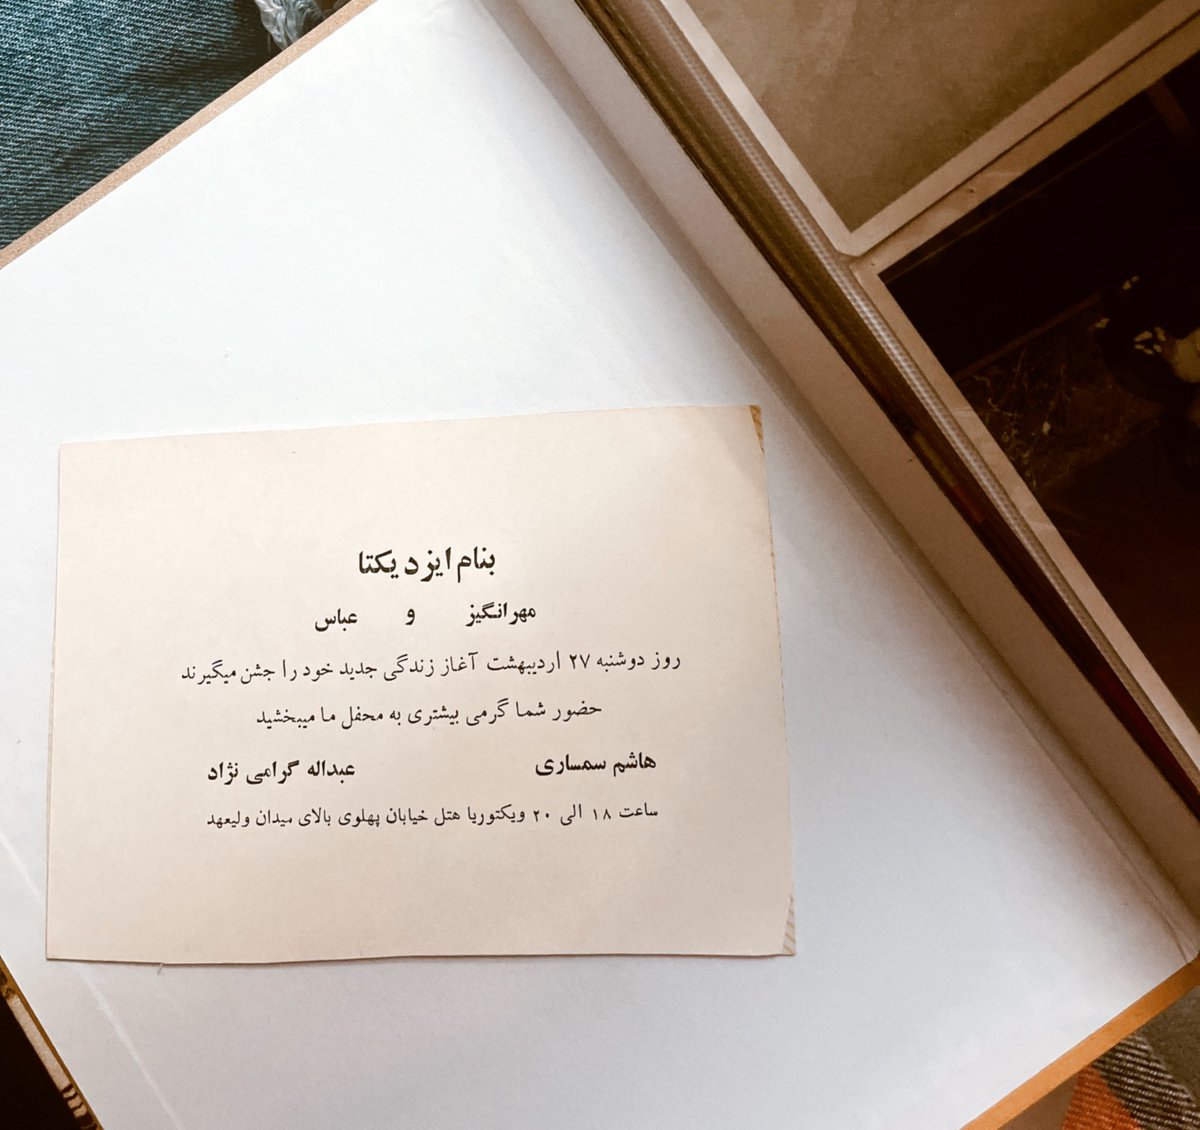 بنام ایزد یکتا
مهرانگیز و عباس
روز دوشنبه ۲۷ اردیبهشت آغاز زندگی جدید خود را جشن میگیرند
حضور شما گرمی بیشتری به محفل ما میبخشید
هاشم سمساری عبداله گرامی نژاد
ساعت ۱۸ الی ۲۰ ویکتوریا هتل خیابان پهلوی بالای میدان ولیعهد